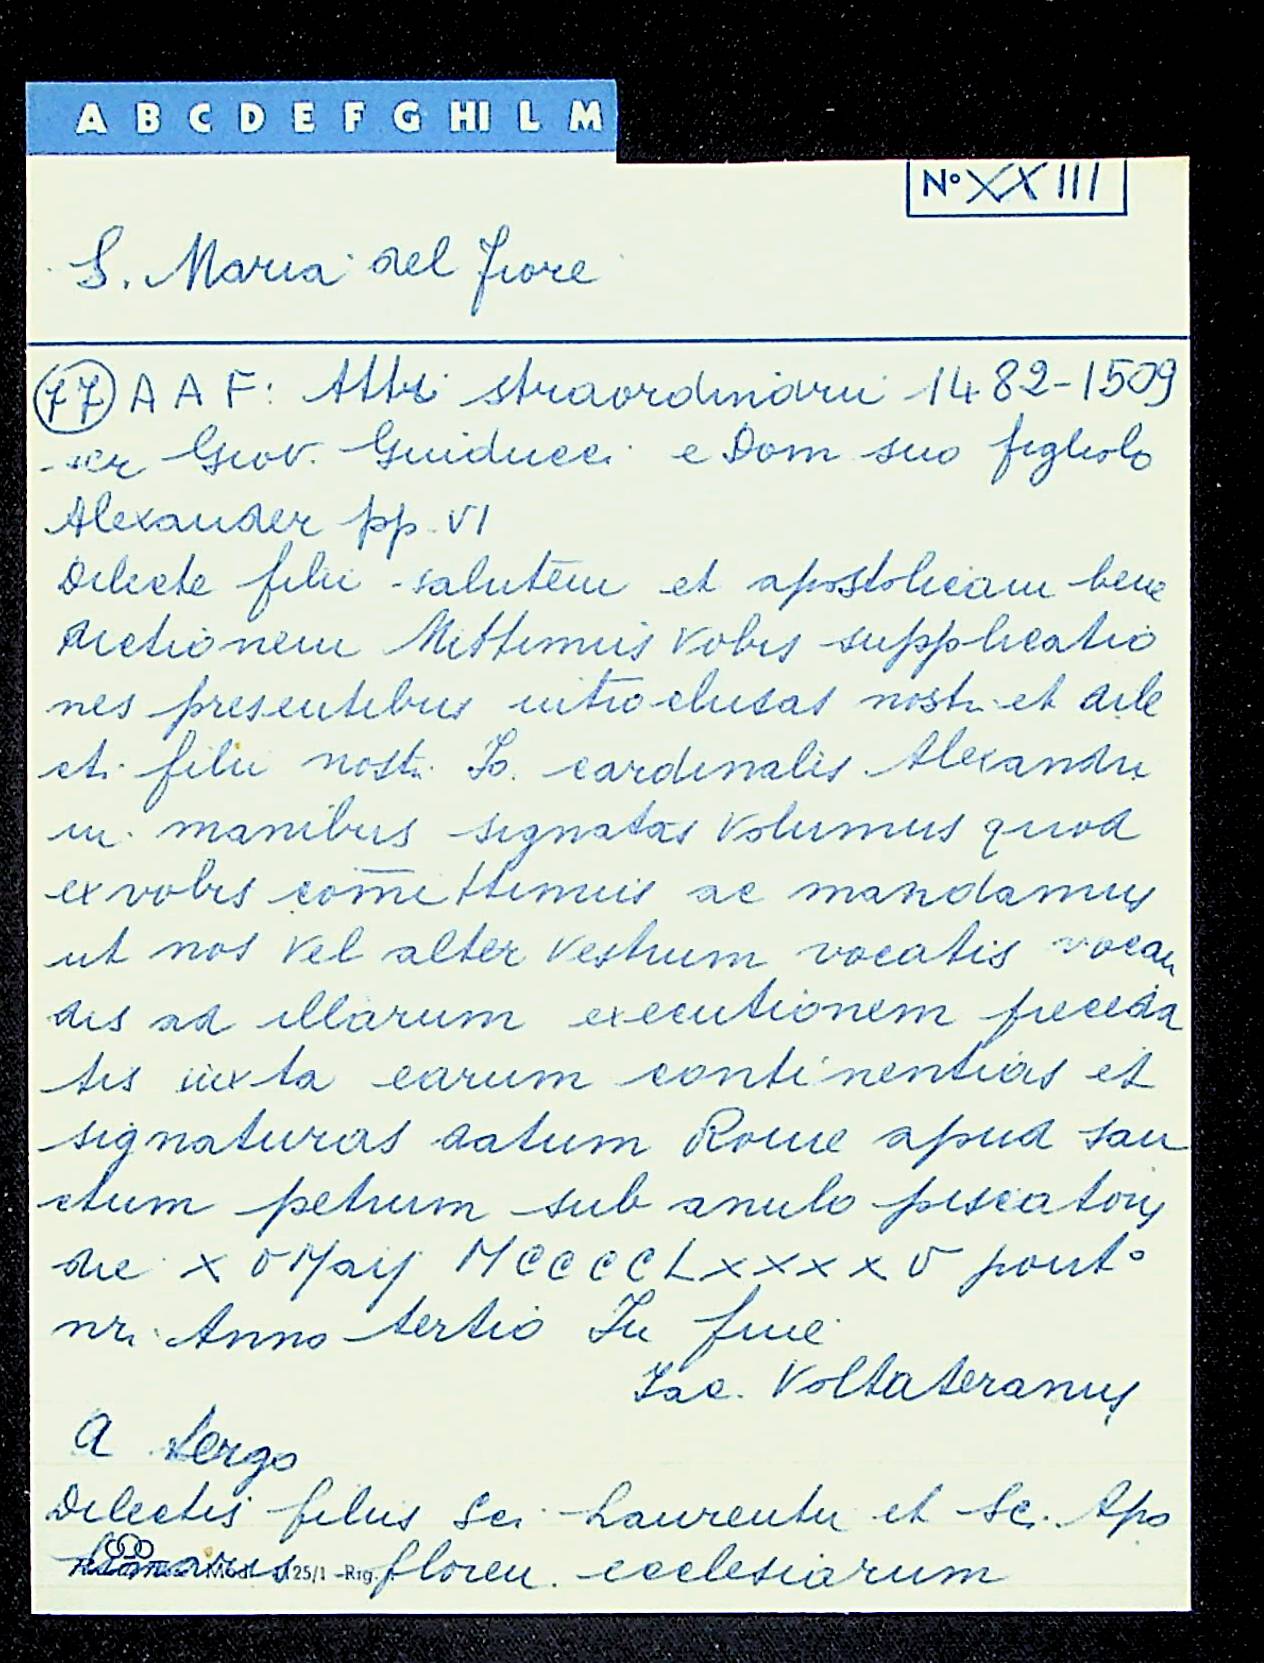 A B C D E F G HI L M
N° XXIII
S. Maria del Fiore
77 A A F: Atti straordinarii 1482-1509
ser Giov. Guiducci e Dom suo figliolo
Alexander pp. VI
Dilecte filii salutēm et apostolicam bene
dictionem Mittimus vobis supplicatio
nes presentibus introclusas nostr. et dile
cti filii nostri Jo. cardinalis Alexandri
manibus signatas volumus quod
ex vobis com̄ittimus ac mandamus
ut nos vel alter vestrum vocatis vocan
dis ad illarum executionem
tis iuxta earum continentias et
signaturas datum Rome apud san
ctum petrum sub anulo piscatoris
die x v Maij MCCCCLxxxxv pont°
nri. Anno tertio In fine
Jac. Voltateranus
A tergo
Dilectis filiis Sci. Laurentii et Sc. Apo
Mod. 125/1 -Rig. floren. ecclesiarum